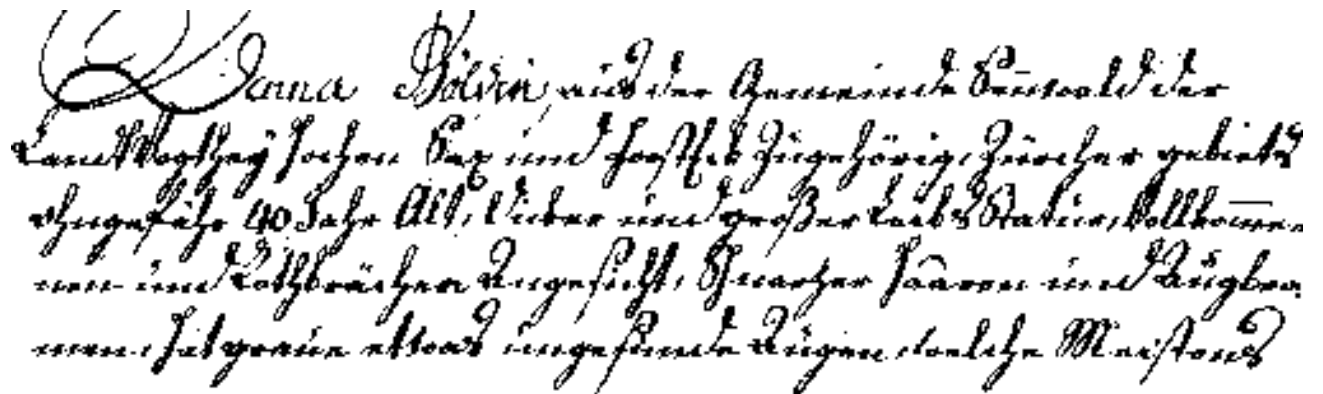 Anna Göldin, aus der Gemeind Sennwald der
Landvogthey hochen Sax und Forstek Zugehörig, Zürcher gebiets
ohngefähr 40 Jahr Alt, dicker und großer Leibs Statur, Vollkomme-
nen und Rothbrächen Angesicht, Schwarzer Haaren und Augbra
unen, hat graue etwas ungesunde Augen, welche Meistens